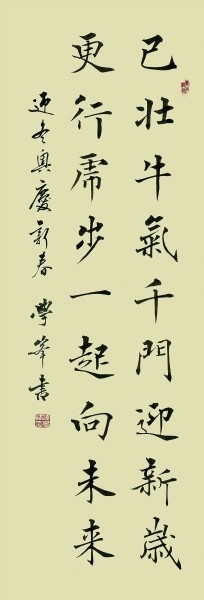 已壯牛氣千門迎新歲
更行虎步一起向未来
迎冬奥慶新春 學峰書